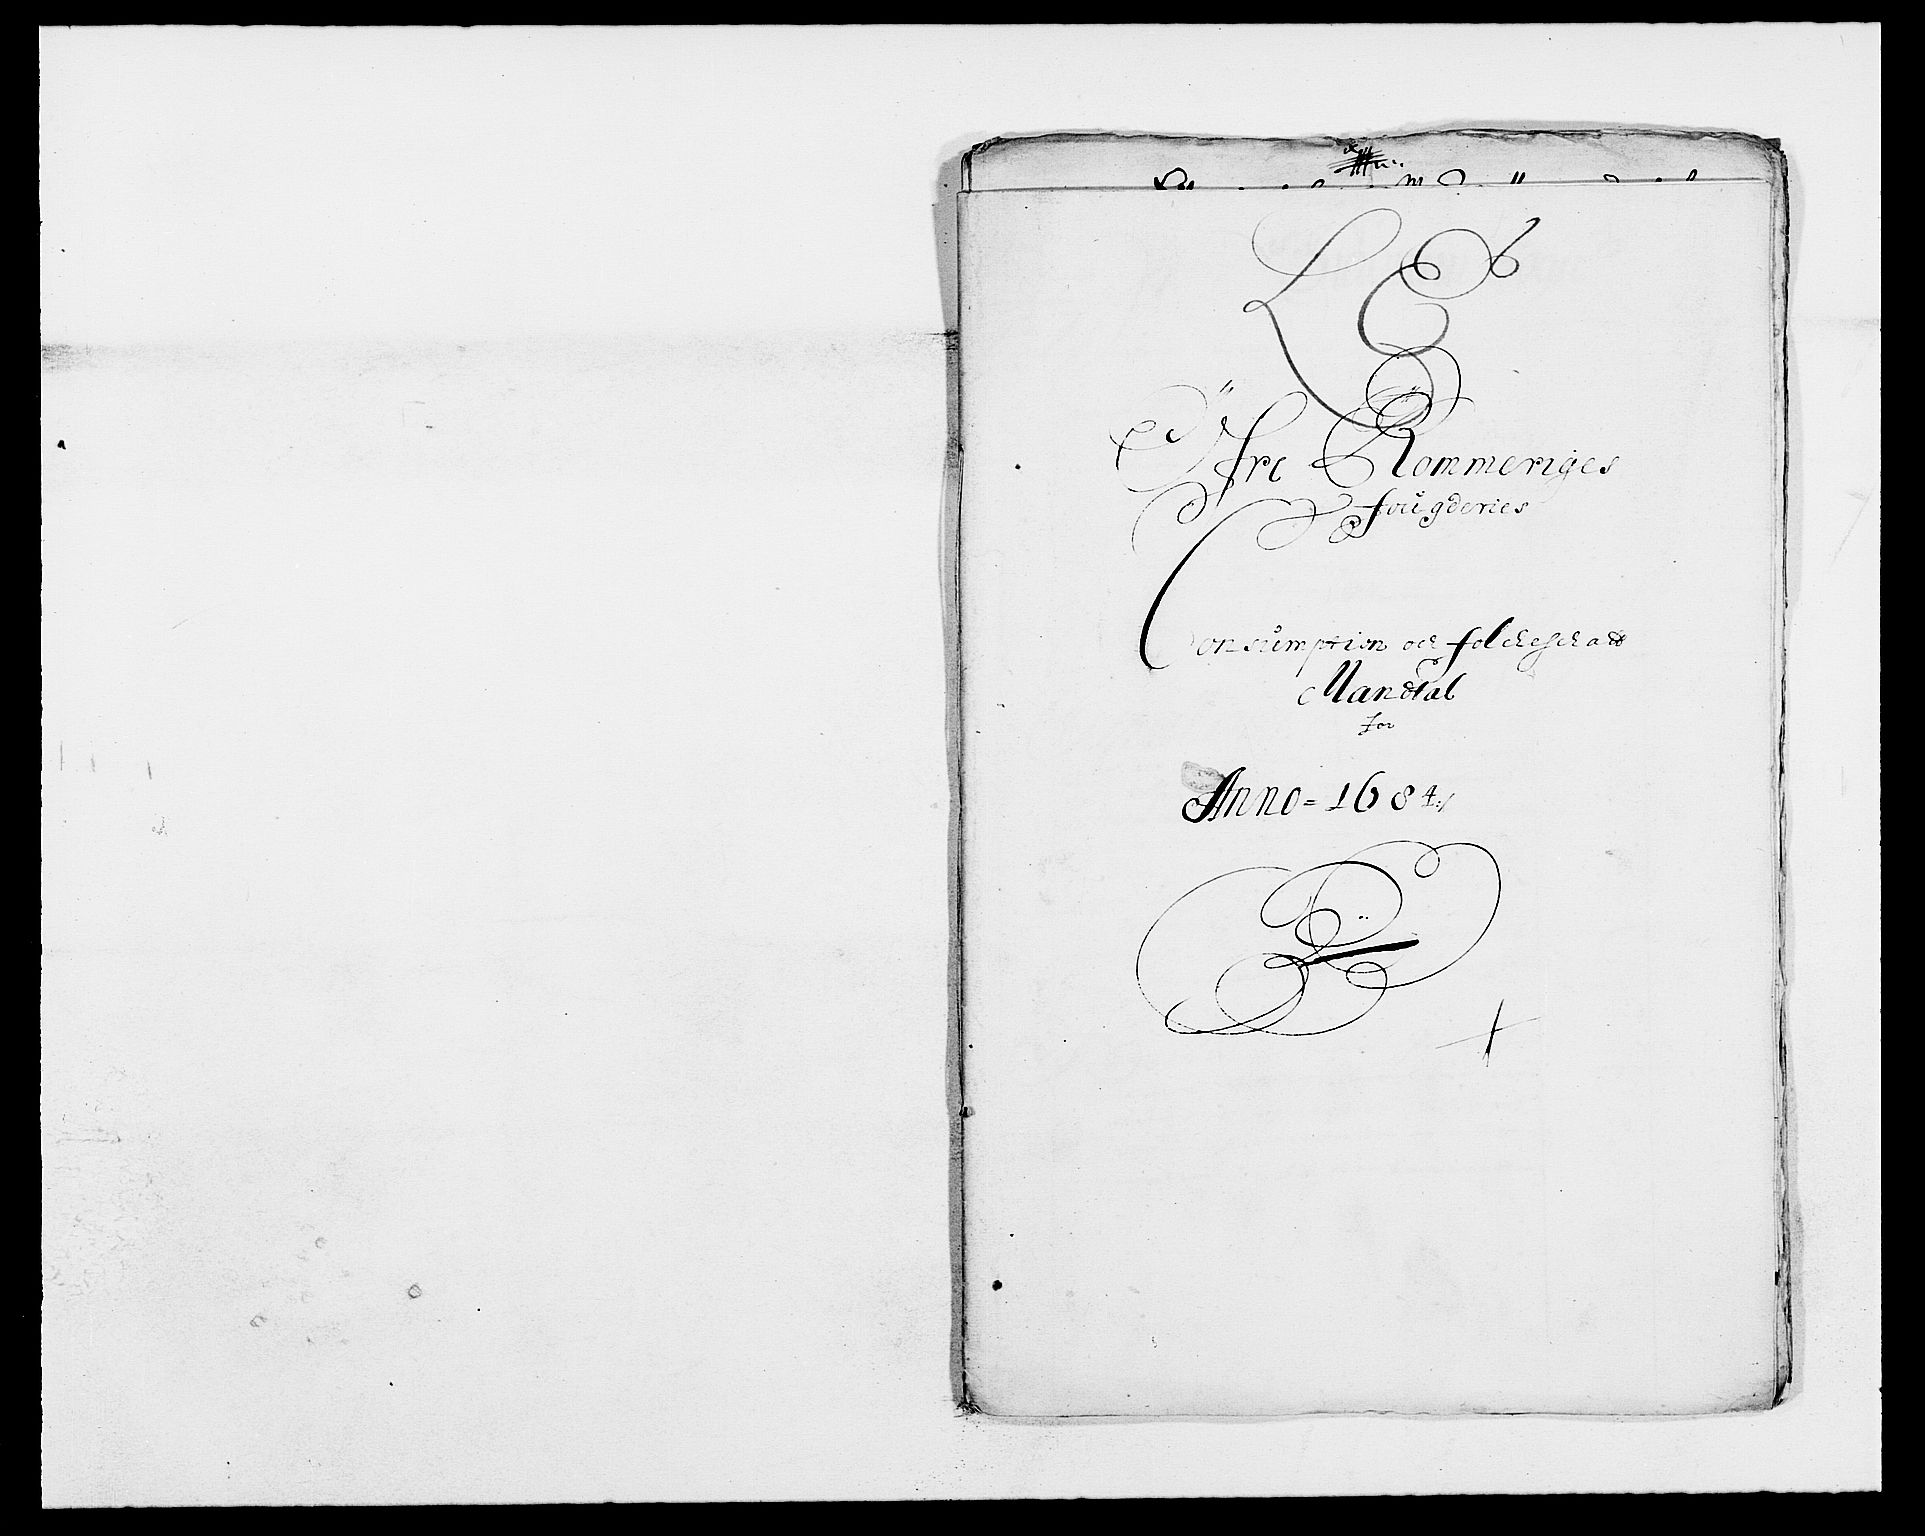 L E
Öfre Rommeriges
foŭgderies
Consŭmption och folckeschatt
Mandtal
for
Anno = 1684 :/